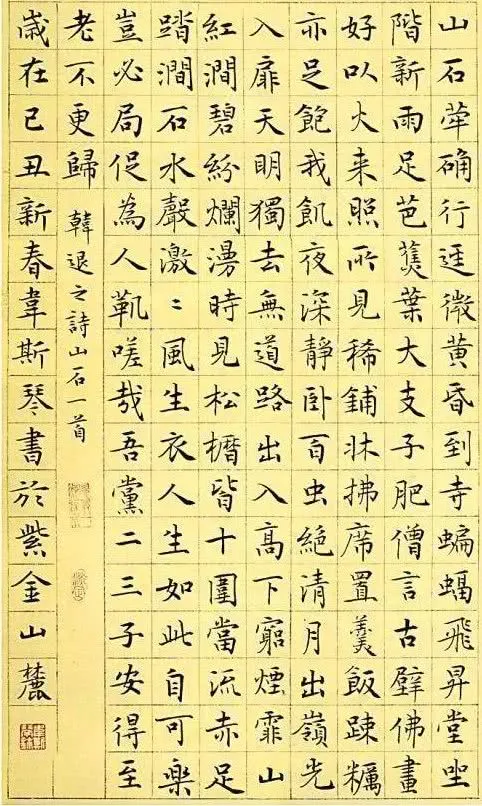 山石荦确行逕微黃昏到寺蝙蝠飛昇堂坐
階新雨足芭蕉葉大支子肥僧言古壁佛畫
好以火来照所見稀鋪牀拂席置羮飯疎糲
亦足飽我飢夜深靜卧百虫絕清月出嶺光
入扉天明獨去無道路出入高下窮煙霏山
紅澗碧紛爛漫時見松櫪皆十圍當流赤足
踏澗石水聲激〻風生衣人生如此自可樂
豈必局促為人鞿嗟哉吾黨二三子安得至
老不更歸 韓退之詩山石一首
歲在己丑新春韋斯琴書於紫金山麓